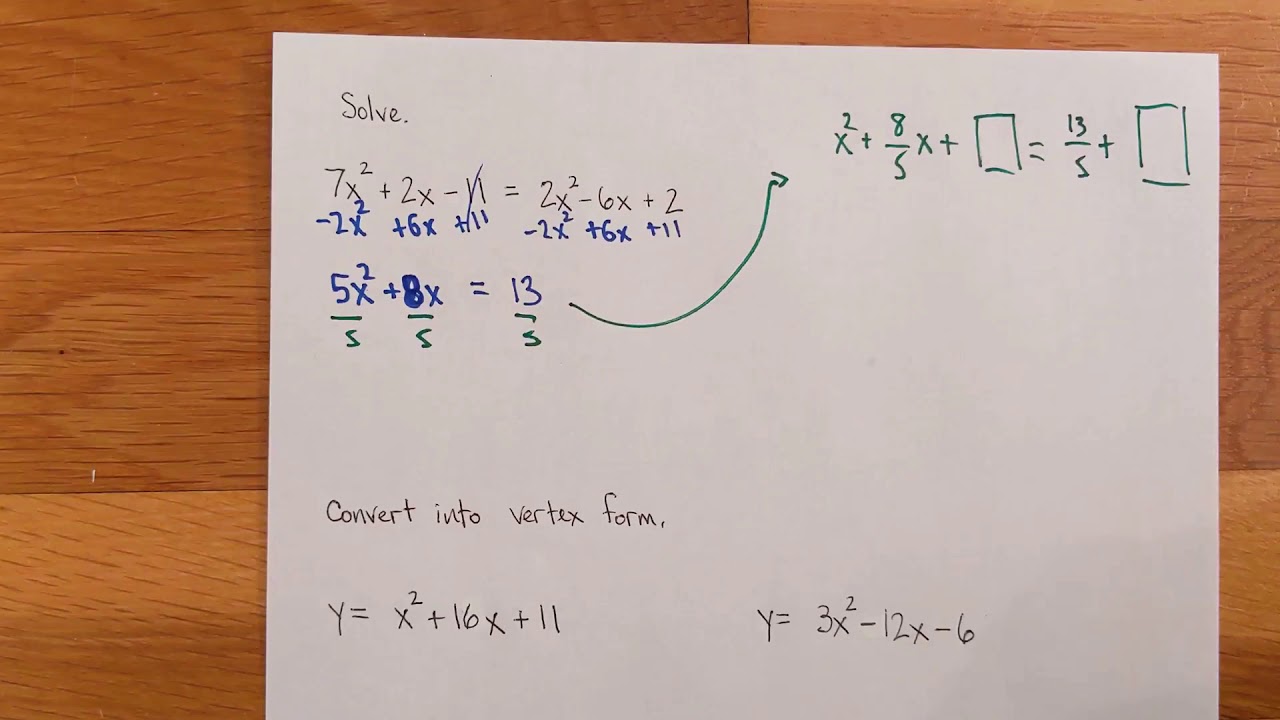 Solve.
7x² + 2x - 11 = 2x² - 6x + 2
-2x² +6x +11 -2x² +6x +11
5x² + 8x = 13
5 5 5
x² + 8/5 x + □ = 13/5 + □
Convert into vertex form.
y = x² + 16x + 11
y = 3x² - 12x - 6